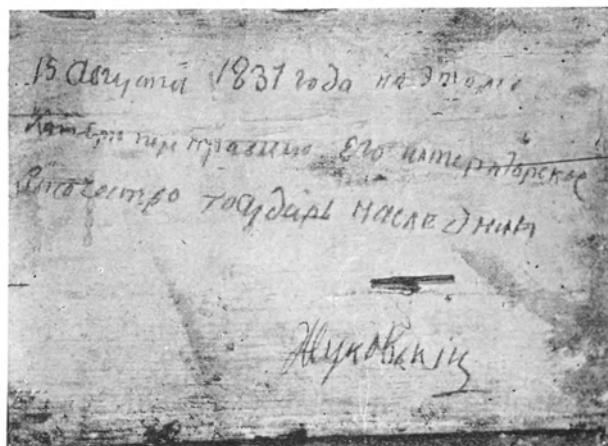 15 Августа 1837 года на этомъ
Катерѣ переправился Его императорское
Высочество государь наследникъ
Жуковскій